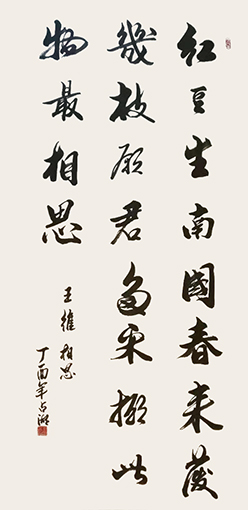 红豆生南國春来發
幾枝願君多采擷此
物最相思
王維 相思
丁酉年